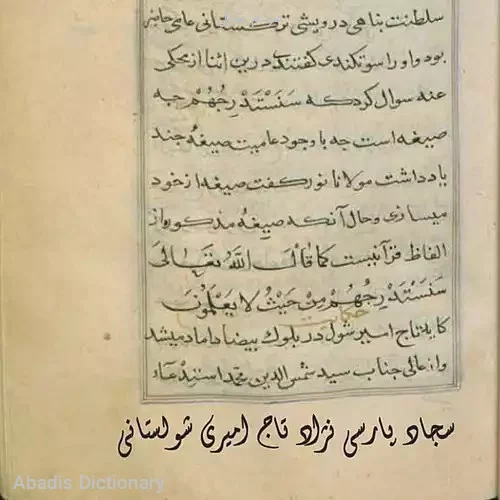 سلطنت بناهی درویشی ترکستانی عامی حاضر
بود و او را سوتکندی گفتندی درین اثنا از محکی
عنه سوال کرد که سَنَسْتَدْرِجُهُمْ چه
صیغه است چه با وجود عامیت صیغهٔ چند
یاد داشت مولانا نور گفت صیغه از خود
میسازی و حال آنکه صیغهٔ مذکوره از
الفاظ قرآنیست کما قَالَ اللَّهُ تَعَالَى
سَنَسْتَدْرِجُهُمْ مِنْ حَيْثُ لَا يَعْلَمُونَ
حکایت
تاج امیر شول در بلوک بیضا داماد میشد
و از عالی جناب سید شمس الدین محمد استدعاء
سجاد پارسی نژاد تاج امیری شولستانی
Abadis Dictionary